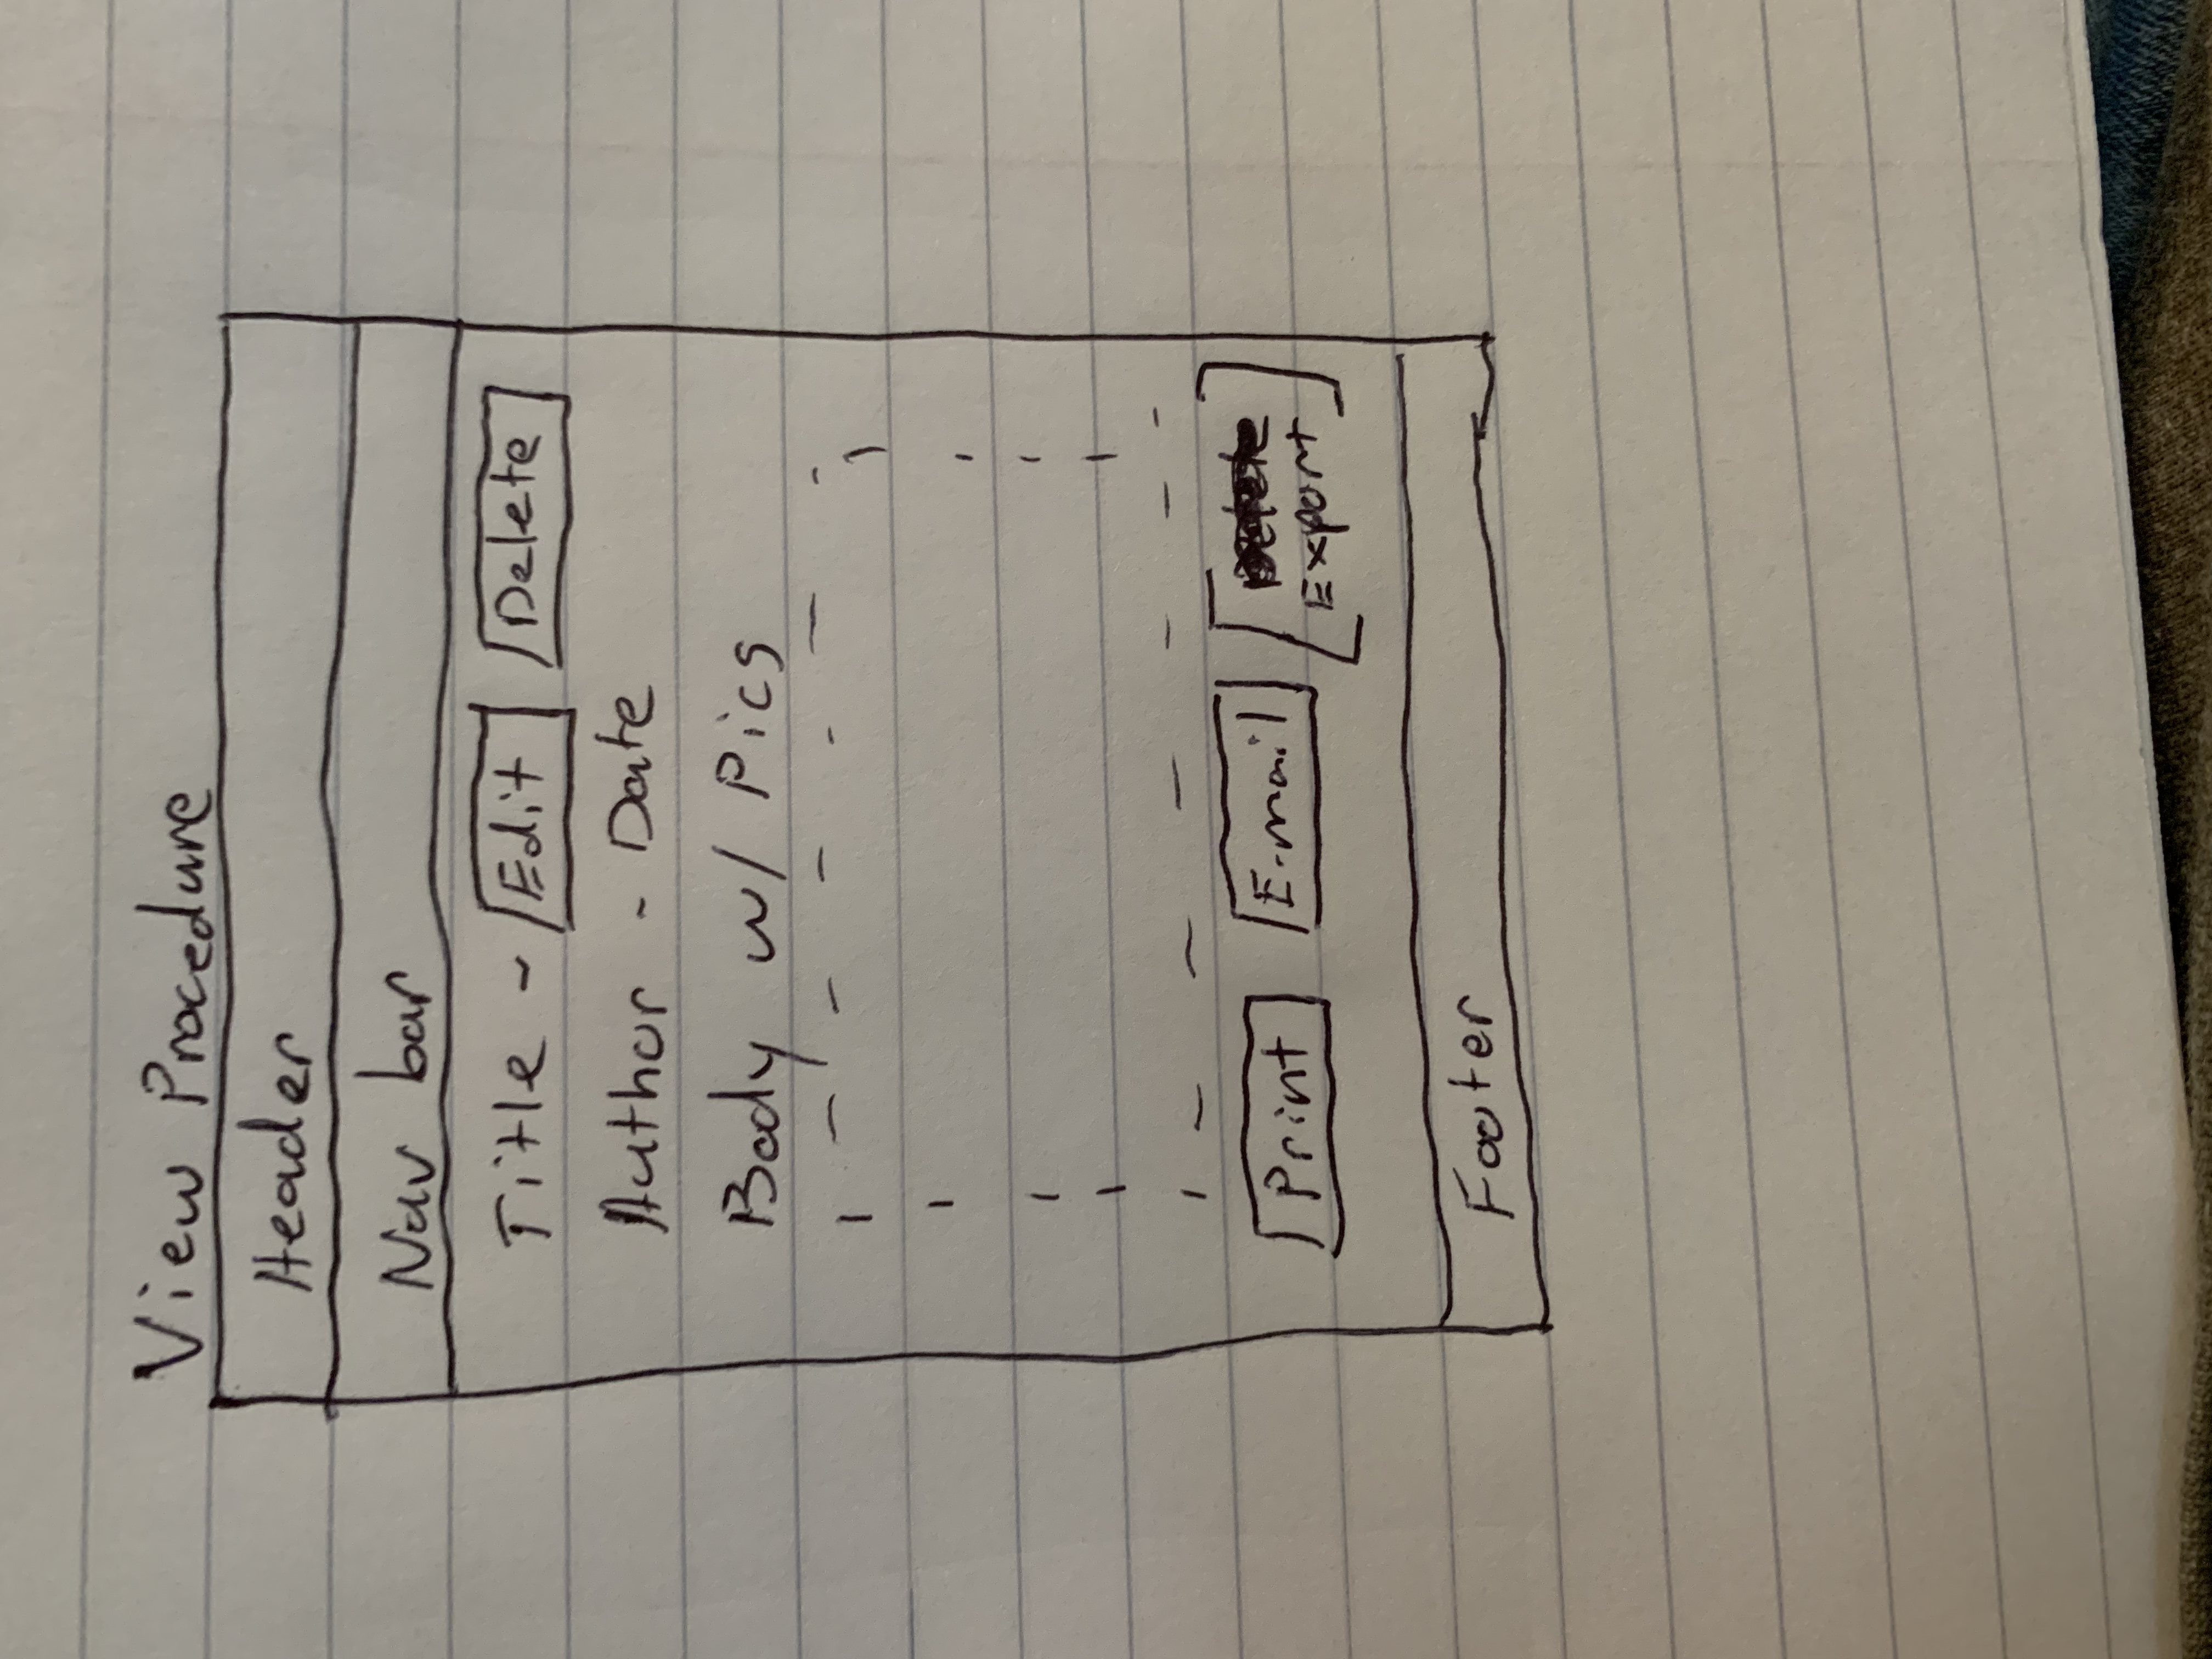 View Procedure
Header
Nav bar
Title - Edit Delete
Author - Date
Body w/ Pics
Print E-mail Export
Footer